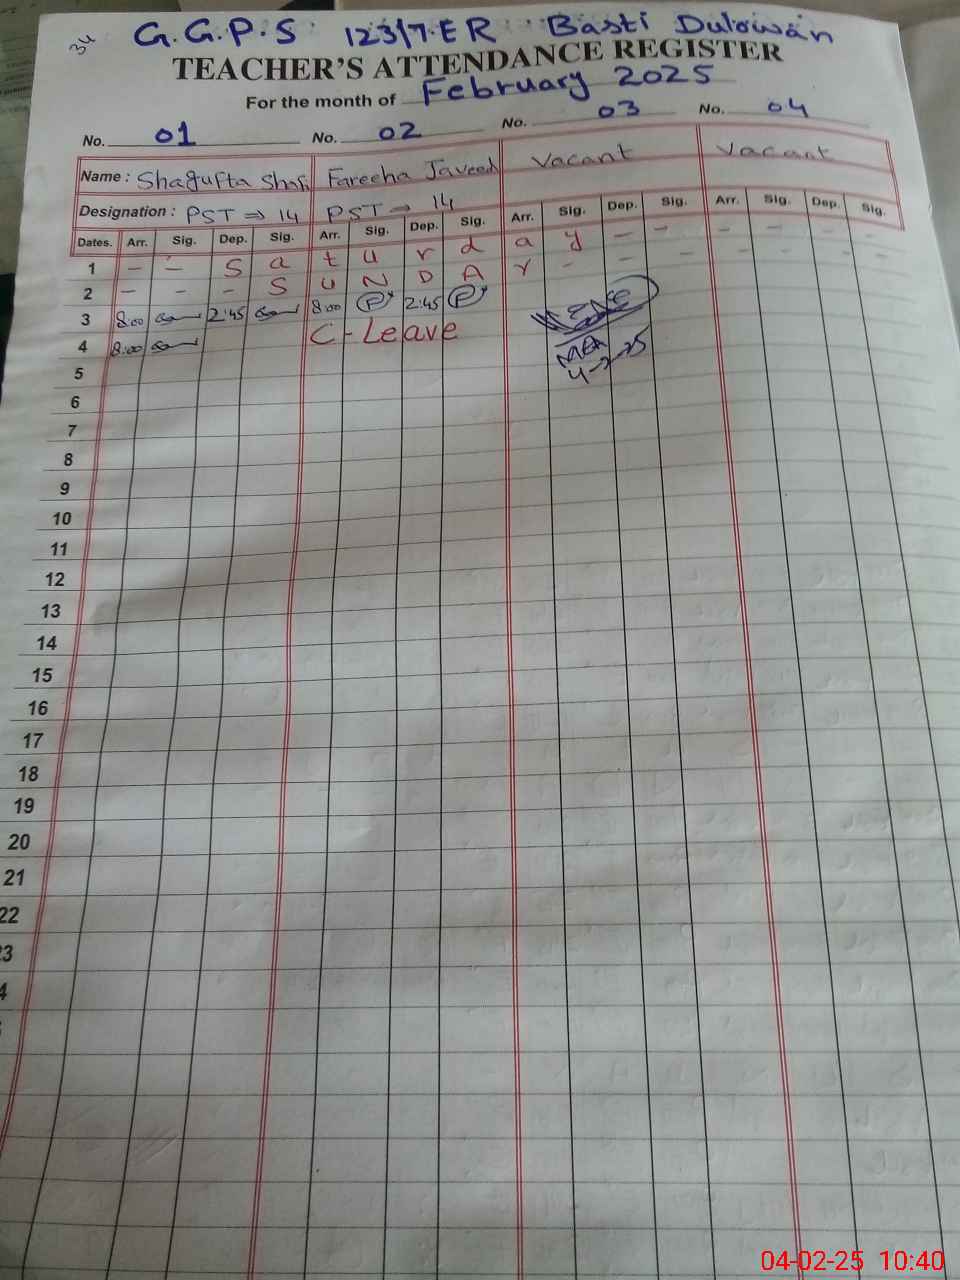 34
G.G.P.S 123/7.ER Basti Dulowan
TEACHER'S ATTENDANCE REGISTER
For the month of February 2025
No. 01 No. 02 No. 03 No. 04
Name : Shagufta Shafi Fareeha Javeed Vacant Vacant
Designation : PST ⇒ 14 PST ⇒ 14
Dates. Arr. Sig. Dep. Sig. Arr. Sig. Dep. Sig. Arr. Sig. Dep. Sig. Arr. Sig. Dep. Sig.
1 - - S a t u r d a y - - - - - -
2 - - - S U N D A Y - - - - - - -
3 8:00 2:45 8:00 P 2:45 P
4 8:00 C-Leave
4-2-25
5
6
7
8
9
10
11
12
13
14
15
16
17
18
19
20
21
22
23
4
04-02-25 10:40